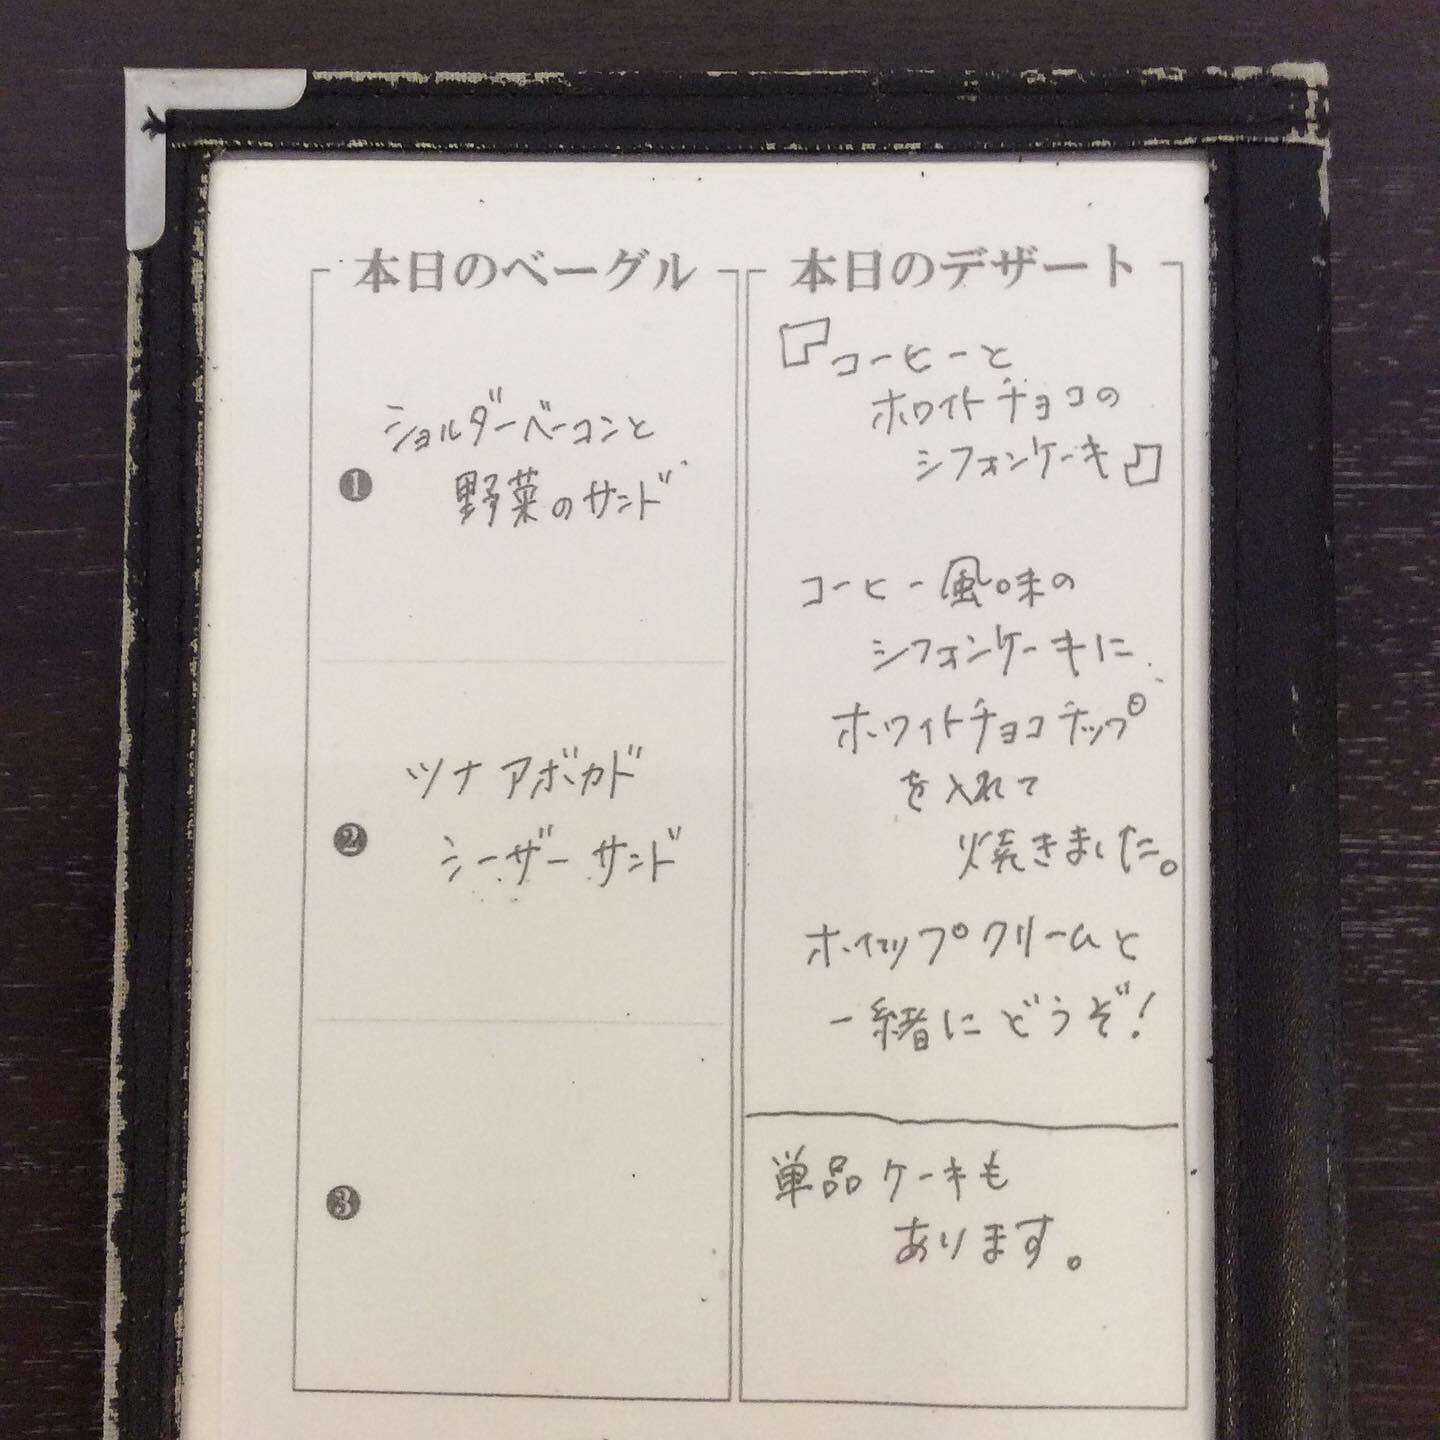 本日のベーグル
❶
ショルダーベーコンと
野菜のサンド
❷
ツナアボカド
シーザーサンド
❸
本日のデザート
『コーヒーと
ホワイトチョコの
シフォンケーキ』
コーヒー風味の
シフォンケーキに
ホワイトチョコチップ
を入れて
焼きました。
ホイップクリームと
一緒にどうぞ!
単品ケーキも
あります。